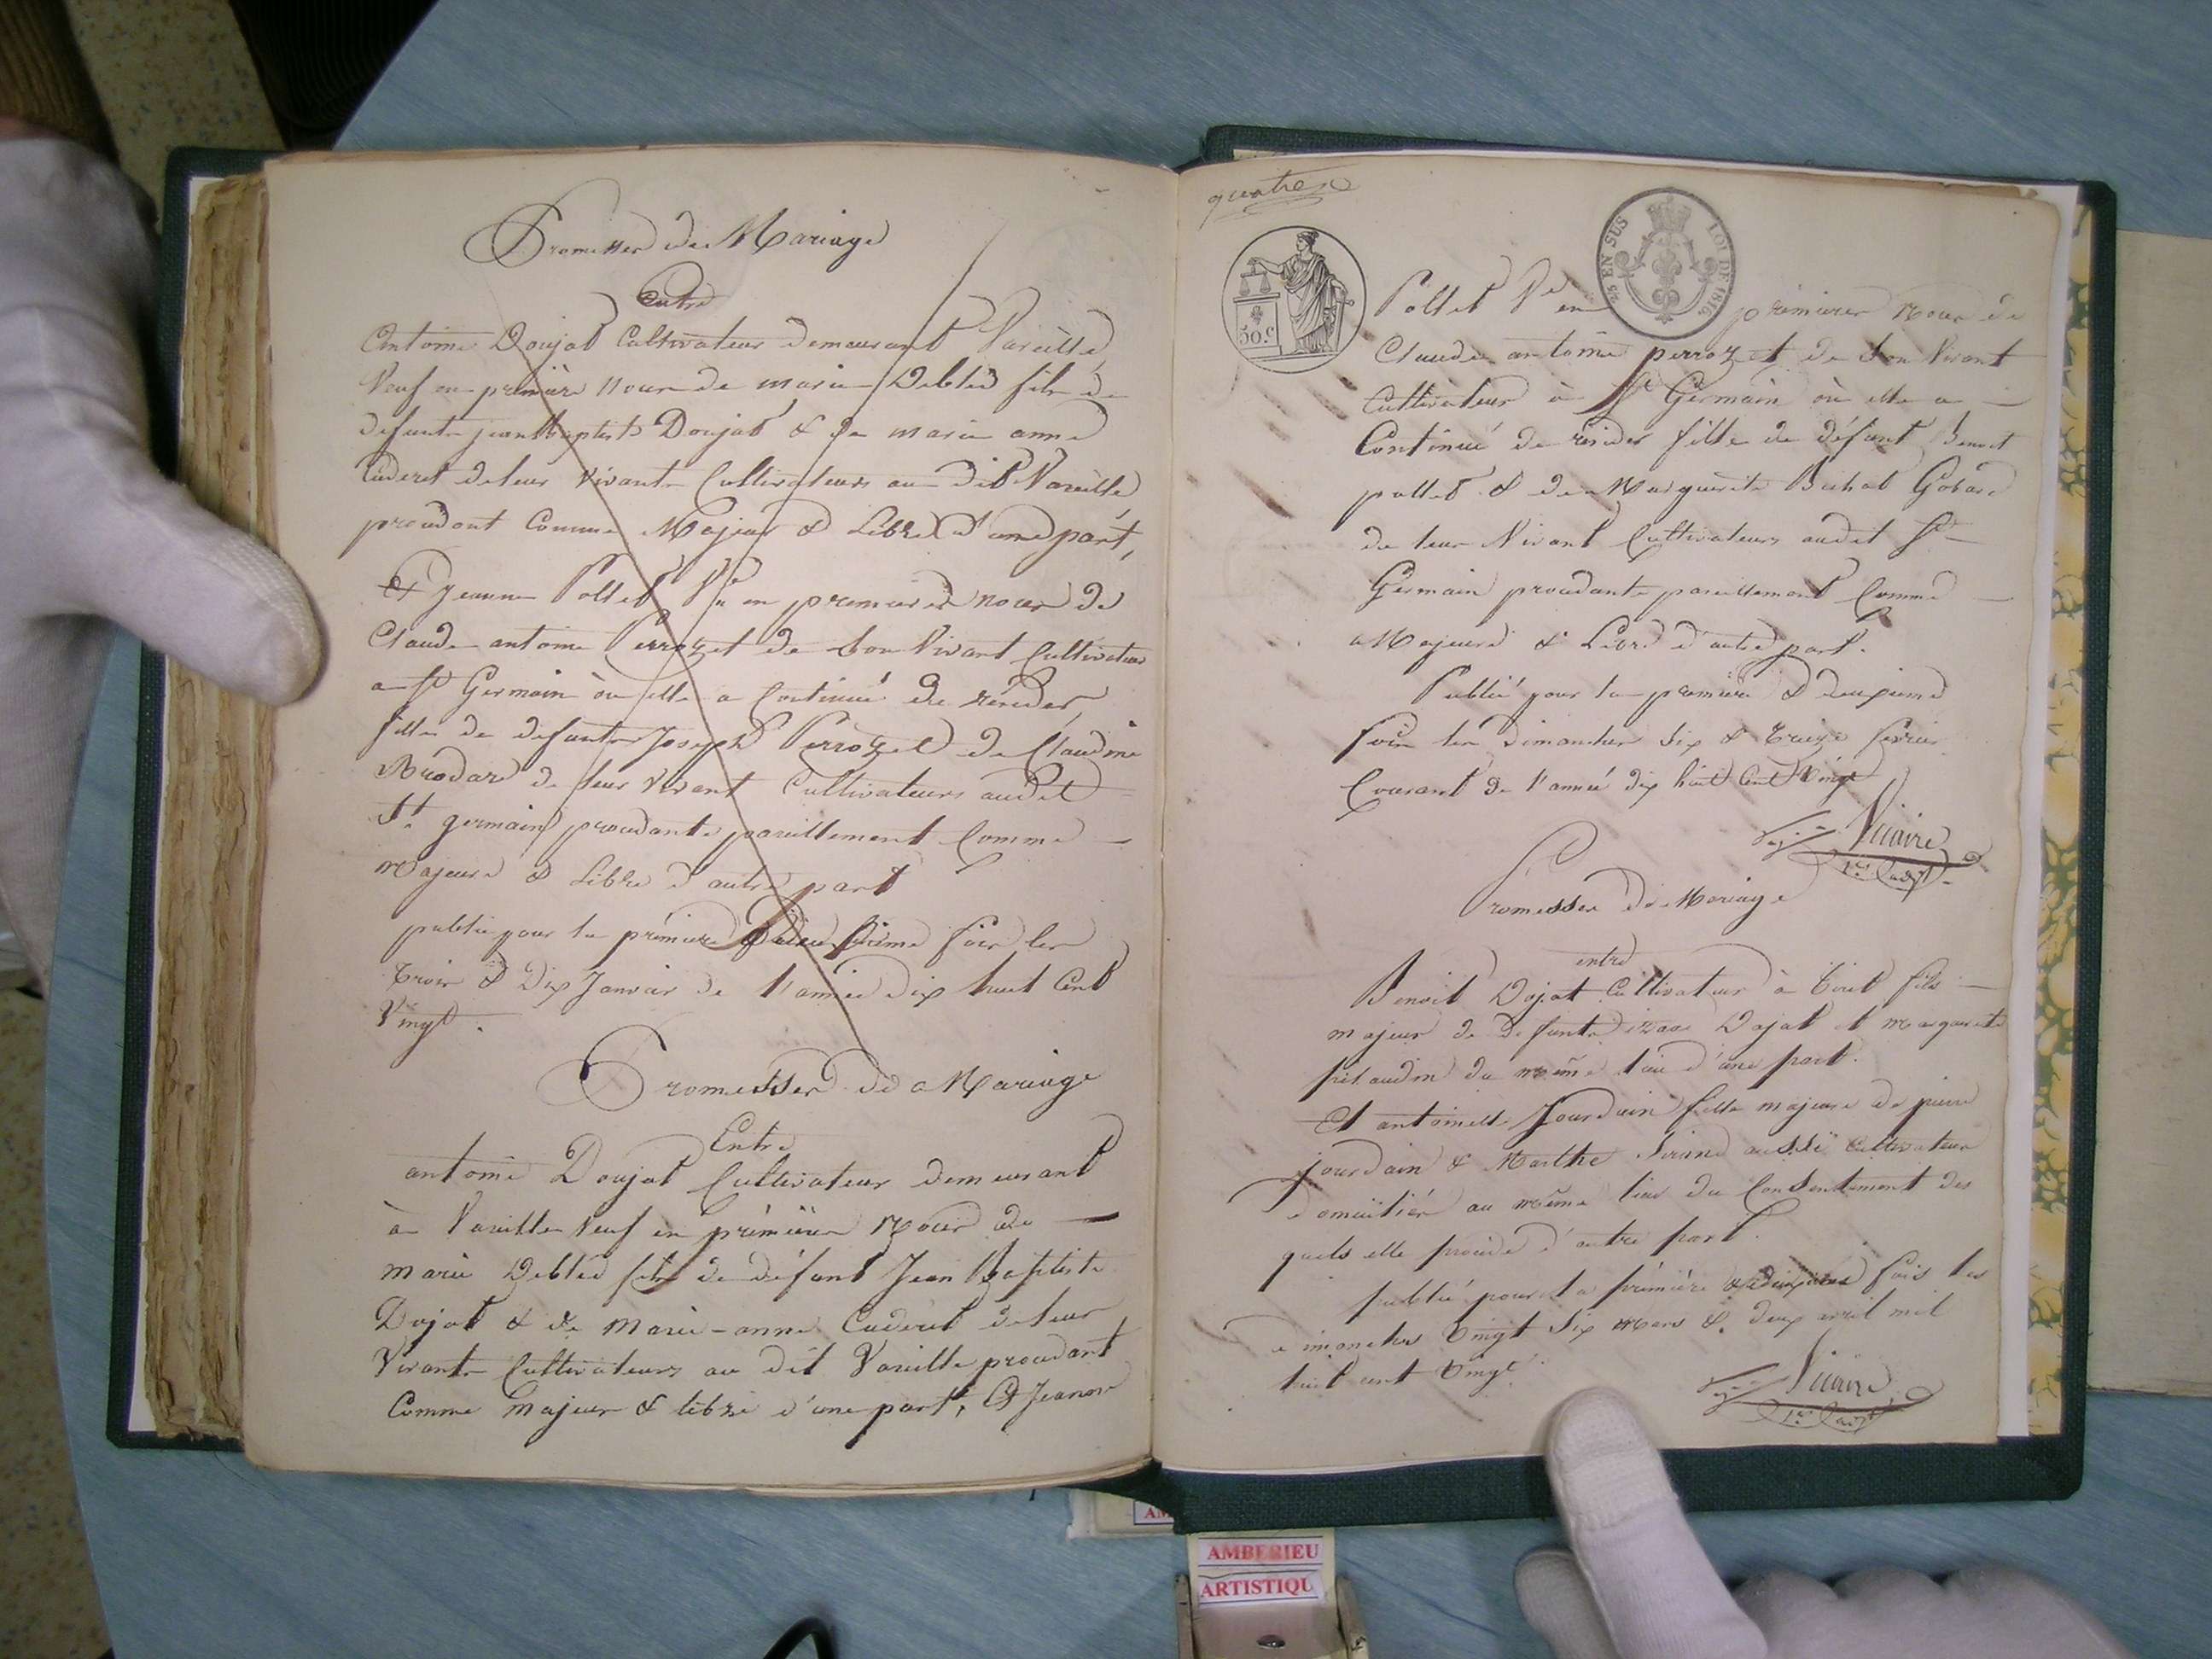 Promesses de Mariage
Entre
Antoine Doujat Cultivateur demeurant Vareille
Veuf en première noces de marie Deblés fils de
defunts jean Baptiste Doujat & de marie anne
Cuderet de leur Vivants Cultivateurs au dit Vareille
procédant Comme Majeur & Libre d'une part,
Et jeanne Pollet Ve en premieres noces de
Claude antoine Perrozet de Son Vivant Cultivateur
a St Germain où elle a Continué de résider
fille de defunts Joseph Perrozet de Claudine
Brodard de leur Vivant Cultivateurs audit
St germain procedante pareillement Comme
Majeure & Libre d'autre part
publié pour la première & deuxième fois les
trois & Dix Janvier de l'année dix huit Cent
Vingt.
Promesses de Mariage
Entre
antoine Doujat Cultivateur demeurant
à Vareille Veuf en prémières Noces de
Marie Deblés fils de défunt Jean Baptiste
Dojat & de Marie-anne Cuderet de leur
Vivants Cultivateurs au dit Vareille procedant
Comme Majeur & libre d'une part, Et Jeanne
quatre
50 c
25 EN SUS LOI DE 1816
Pollet Ve en prémières Noces de
Claude antoine perrozet de Son Vivant
Cultivateur à St Germain où elle a
Continué de résider fille de défunt Benoit
pollet & de Marguerite Buhat Gobard
de leur Vivant Cultivateurs audit St
Germain procédante pareillement Comme
Majeure & Libre d'autre part.
Publié pour la première & deuxieme
fois les Dimanches Six & treize février
Courant de l'année dix huit Cent Vingt
Vicaire
1er adjt
Promesses de Mariage
entre
Benoit Dojat Cultivateur à Tiret fils
majeur de Defunts Dojat et marguerite
du même lieu d'une part.
Et antoinette Jourdain fille majeure de pierre
jourdain & Marthe aussi Cultivateurs
domiciliés au même lieu du Consentement des
quels elle procède d'autre part.
publié pour la prémière & deuxième fois les
dimanches Vingt Six mars & deux avril mil
huit cent Vingt.
Vicaire
1er adjt
AMBERIEU
ARTISTIQU